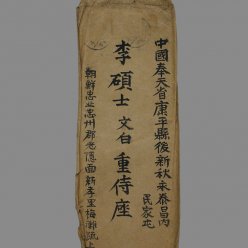 中國奉天省康平縣後新秋永泰昌內
民家屯
李碩士 文白 重侍座
朝鮮忠北忠州郡老隱面新孝里梅谷流上